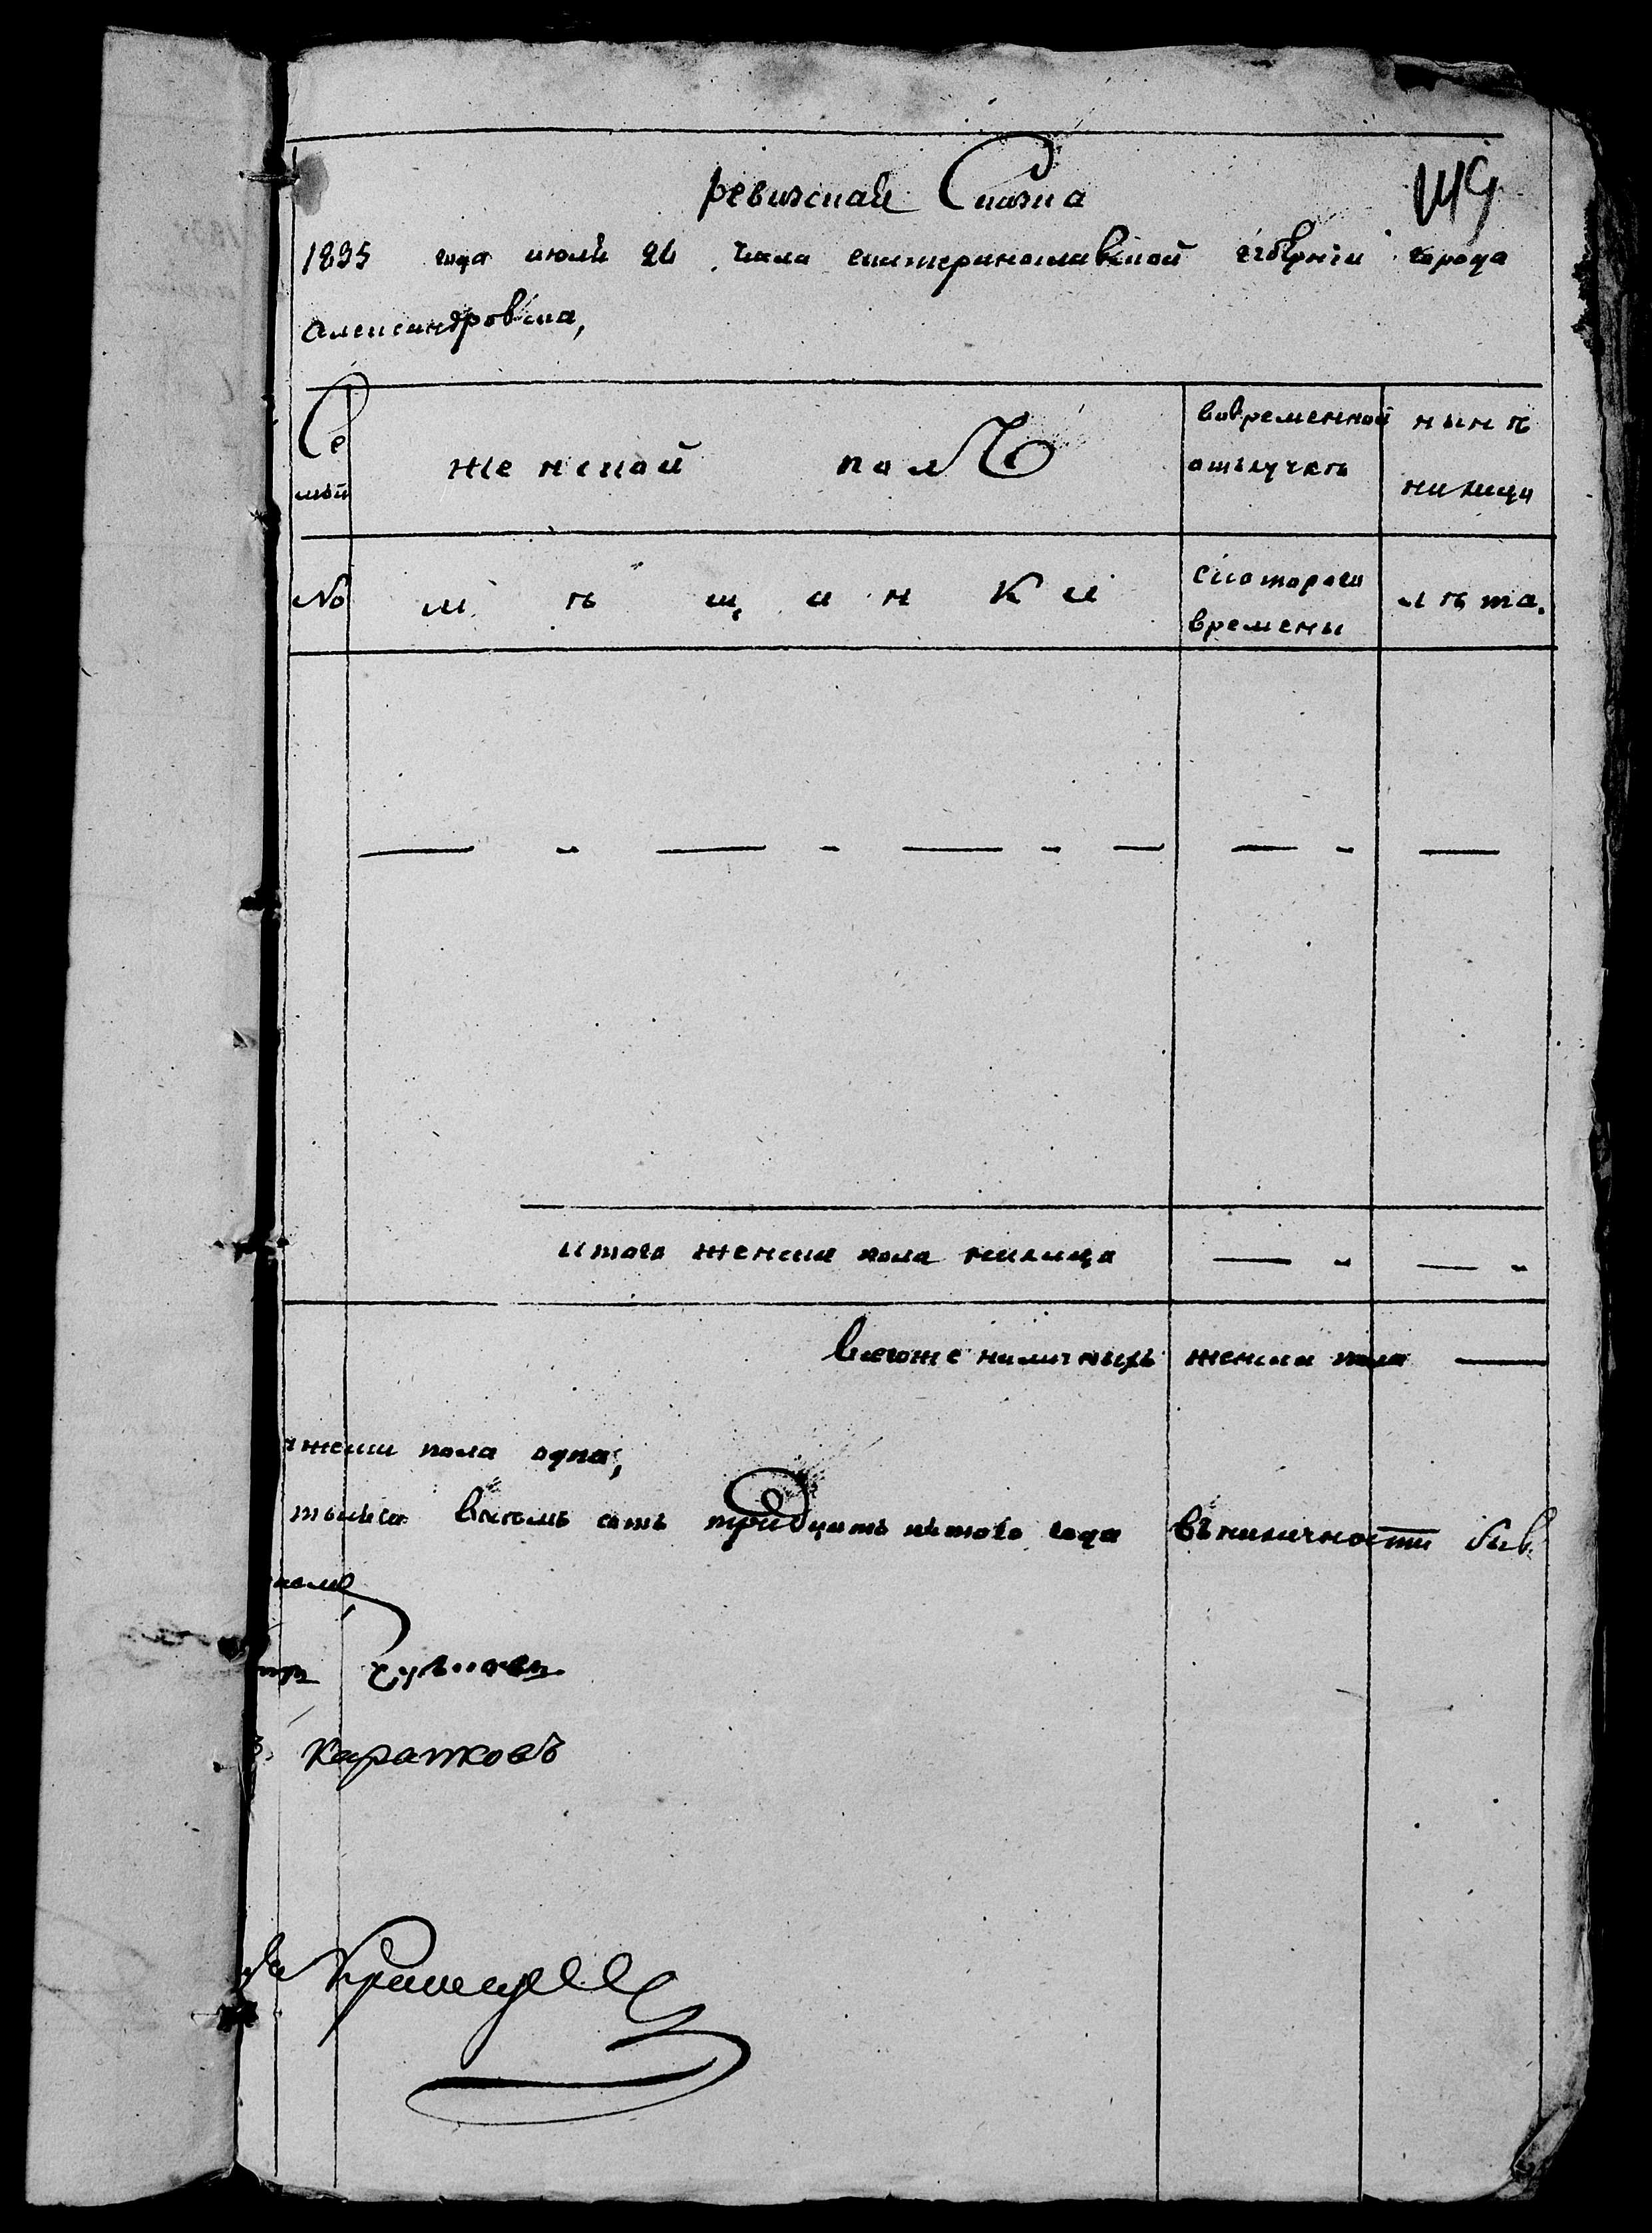 ревижскаѣ Сказка
1835 года июлѣ 26 числа екатеринославской губерніи города
Александровска,
Се
мѣи
женской полъ
вовременной
отълучкѣ
нынѣ
налицо
№
мѣщанки
скоторого
времены
лѣта.
итого женска пола налицо
всегоже наличныхъ женска пола
женска пола одна,
тысяча восемь сотъ тридцать пѣтого года въналичности быв
Каратковъ